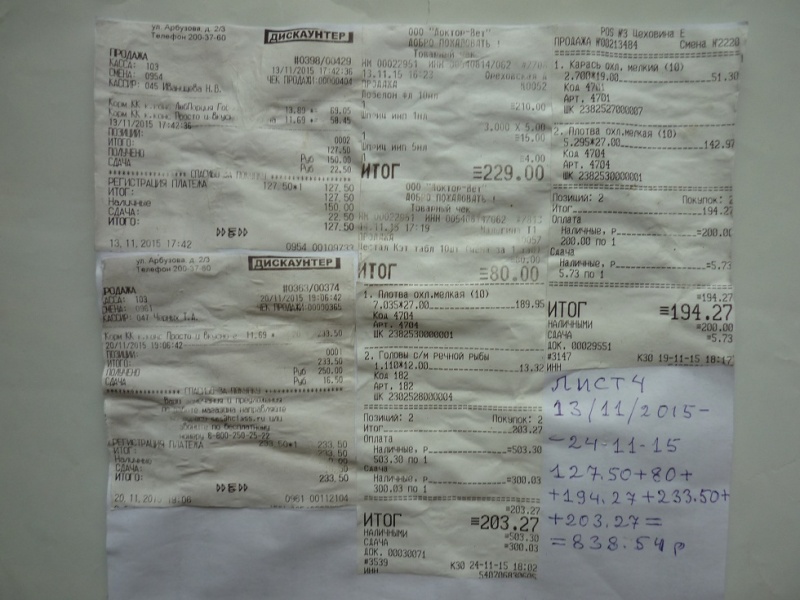 ул. Арбузова, д. 2/3
Телефон 200-37-60
ДИСКАУНТЕР
ПРОДАЖА
КАССА: 103
СМЕНА: 0954
КАССИР: 045 Иванцова Н.В.
#0398/00429
13/11/2015 17:42:36
Корм КК к.конс
13.89 * 69.05
Корм КК к.конс Просто и Вкусно
11.69 * 58.45
13/11/2015 17:42:36
ПОЗИЦИИ: 0002
ИТОГО: 127.50
ПОЛУЧЕНО Руб 150.00
СДАЧА Руб 22.50
РЕГИСТРАЦИЯ ПЛАТЕЖА 127.50*1 127.50
ИТОГ: 127.50
Наличные 150.00
СДАЧА: 22.50
ИТОГО: 127.50
13.11.2015 17:42 0954 00109733
ул. Арбузова, д. 2/3
Телефон 200-37-60
ДИСКАУНТЕР
#0363/00374
20/11/2015 19:06:42
Корм КК к.конс Просто и Вкусно 11.69 * 233.50
20/11/2015 19:06:42
ПОЗИЦИИ: 0001
ИТОГО: 233.50
ПОЛУЧЕНО Руб 250.00
СДАЧА Руб 16.50
или
звоните по бесплатному
номеру 8-800-250-25-22
РЕГИСТРАЦИЯ ПЛАТЕЖА 233.50*1 233.50
ИТОГ: 233.50
Наличные
СДАЧА:
ИТОГО: 233.50
0961 00112104
ООО "Доктор-Вет"
ДОБРО ПОЖАЛОВАТЬ !
Товарный чек
13.11.15 16:23
ПРОДАЖА
≡210.00
Шприц имп 1мл
3.000 X 5.00
≡15.00
Шприц имп 5мл
≡4.00
ИТОГ ≡229.00
ООО "Доктор-Вет"
ДОБРО ПОЖАЛОВАТЬ !
Товарный чек
17:19
ИТОГ ≡80.00
1. Плотва охл.мелкая (10)
7.035*27.00 189.95
Код 4704
Арт. 4704
ШК 2382530000001
2. Головы с/м речной рыбы
1.110*12.00 13.32
Код 182
Арт. 182
ШК 2302528000004
Позиций: 2 Покупок: 2
Итог 203.27
Оплата
Наличные, Р =503.30
503.30 по 1
Сдача
Наличные, Р =300.03
300.03 по 1
≡203.27
ИТОГ ≡203.27
НАЛИЧНЫМИ =503.30
СДАЧА =300.03
ДОК. 00030071
#3539 К30 24-11-15 18:02
ИНН
POS №3 Цеховина Е
ПРОДАЖА №00213484 Смена №2220
1. Карась охл. мелкий (10)
2.700*19.00 51.30
Код 4701
Арт. 4701
ШК 2382527000007
2. Плотва охл.мелкая (10)
5.295*27.00 142.97
Код 4704
Арт. 4704
ШК 2382530000001
Позиций: 2 Покупок: 2
Итог 194.27
Оплата
Наличные, Р =200.00
200.00 по 1
Сдача
Наличные, Р =5.73
5.73 по 1
≡194.27
ИТОГ ≡194.27
НАЛИЧНЫМИ =200.00
СДАЧА =5.73
ДОК. 00029551
#3147 К30 19-11-15 18:17
ИНН
ЛИСТ 4
13/11/2015-
-24-11-15
127.50+80+
+194.27+233.50+
+203.27=
=838.54 р